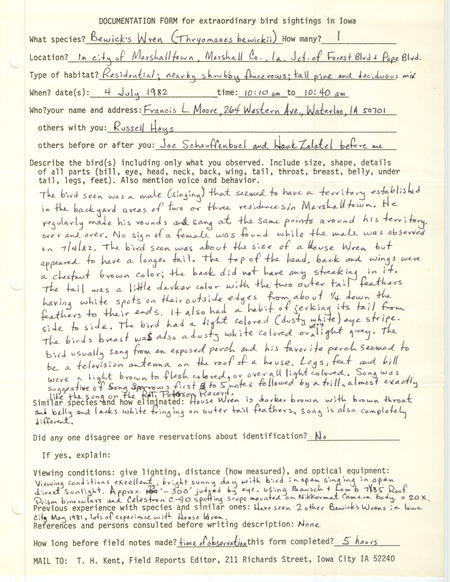 DOCUMENTATION FORM for extraordinary bird sightings in Iowa
What species? Bewick's Wren (Thryomanes bewickii) How many? 1
Location? In city of Marshalltown, Marshall Co., Ia. Jct. of Forest Blvd & Pope Blvd.
Type of habitat? Residential; nearby shrubby; tall pine and deciduous mix
When? date(s): 4 July 1982 time: 10:10 am to 10:40 am
Who? your name and address: Francis L. Moore, 264 Western Ave., Waterloo, IA 50701
others with you: Russell Hays
others before or after you: Joe Schaufenbuel and Hank Zaletel before me
Describe the bird(s) including only what you observed. Include size, shape, details
of all parts (bill, eye, head, neck, back, wing, tail, throat, breast, belly, under
tail, legs, feet). Also mention voice and behavior.
The bird seen was a male (singing) that seemed to have a territory established
in the backyard areas of two or three residences in Marshalltown. He
regularly made his rounds and sang at the same points around his territory
over and over. No sign of a female was found while the male was observed
on 7/4/82. The bird seen was about the size of a House Wren but
appeared to have a longer tail. The top of the head, back and wings were
a chestnut brown color; the back did not have any streaking in it.
The tail was a little darker color with the two outer tail feathers
having white spots on their outside edges from about 1/4 down the
feathers to their ends. It also had a habit of jerking its tail from
side to side. The bird had a light colored (dusty white) eye stripe.
The birds breast was also a dusty white colored or very light grey. The
bird usually sang from an exposed perch and his favorite perch seemed to
be a television antenna on the roof of a house. Legs, feet and bill
were a light brown to flesh colored, or overall light colored. Song was
suggestive of Song Sparrows first 3 to 5 notes followed by a trill, almost exactly
like the song on the Peterson Record.
Similar species and how eliminated: House Wren is darker brown with brown throat
and belly and lacks white fringing on outer tail feathers, song is also completely
different.
Did any one disagree or have reservations about identification? No
If yes, explain:
Viewing conditions: give lighting, distance (how measured), and optical equipment:
Viewing conditions excellent, bright sunny day with bird in open singing in open
direct sunlight. Approx 100'-300' judged by eye. using Bausch & Lomb 7x35 Roof
Prism binoculars and Celestron C-90 spotting scope mounted on Nikkormat Camera body = 20x.
Previous experience with species and similar ones: Have seen 2 other Bewick's Wrens in Iowa
City May 1981, lots of experience with House Wren
References and persons consulted before writing description: None
How long before field notes made? time of observation this form completed? 5 hours
MAIL TO: T. H. Kent, Field Reports Editor, 211 Richards Street, Iowa City IA 52240